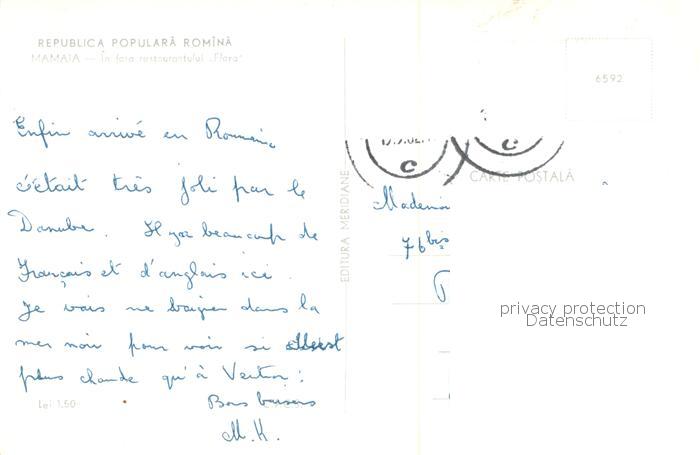 REPUBLICA POPULARĂ ROMÎNĂ
MAMAIA — În fața restaurantului „Flora"
6592
Enfin arrivé en Roumanie
c'était très joli par le
Danube. Il y a beaucoup de
Français et d'anglais ici.
Je vais me baigner dans la
mer noir pour voir si elle est
plus chaude qu'à
Bons baisers
M.K.
Lei 1,50
EDITURA MERIDIANE
C
C
CARTE POSTALĂ
76 bis
privacy protection
Datenschutz